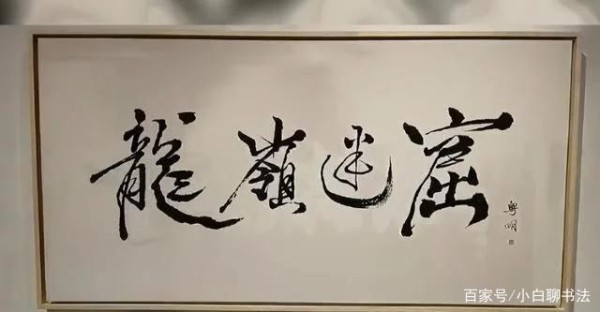 龍嶺迷窟
粤明
百家号/小白聊书法